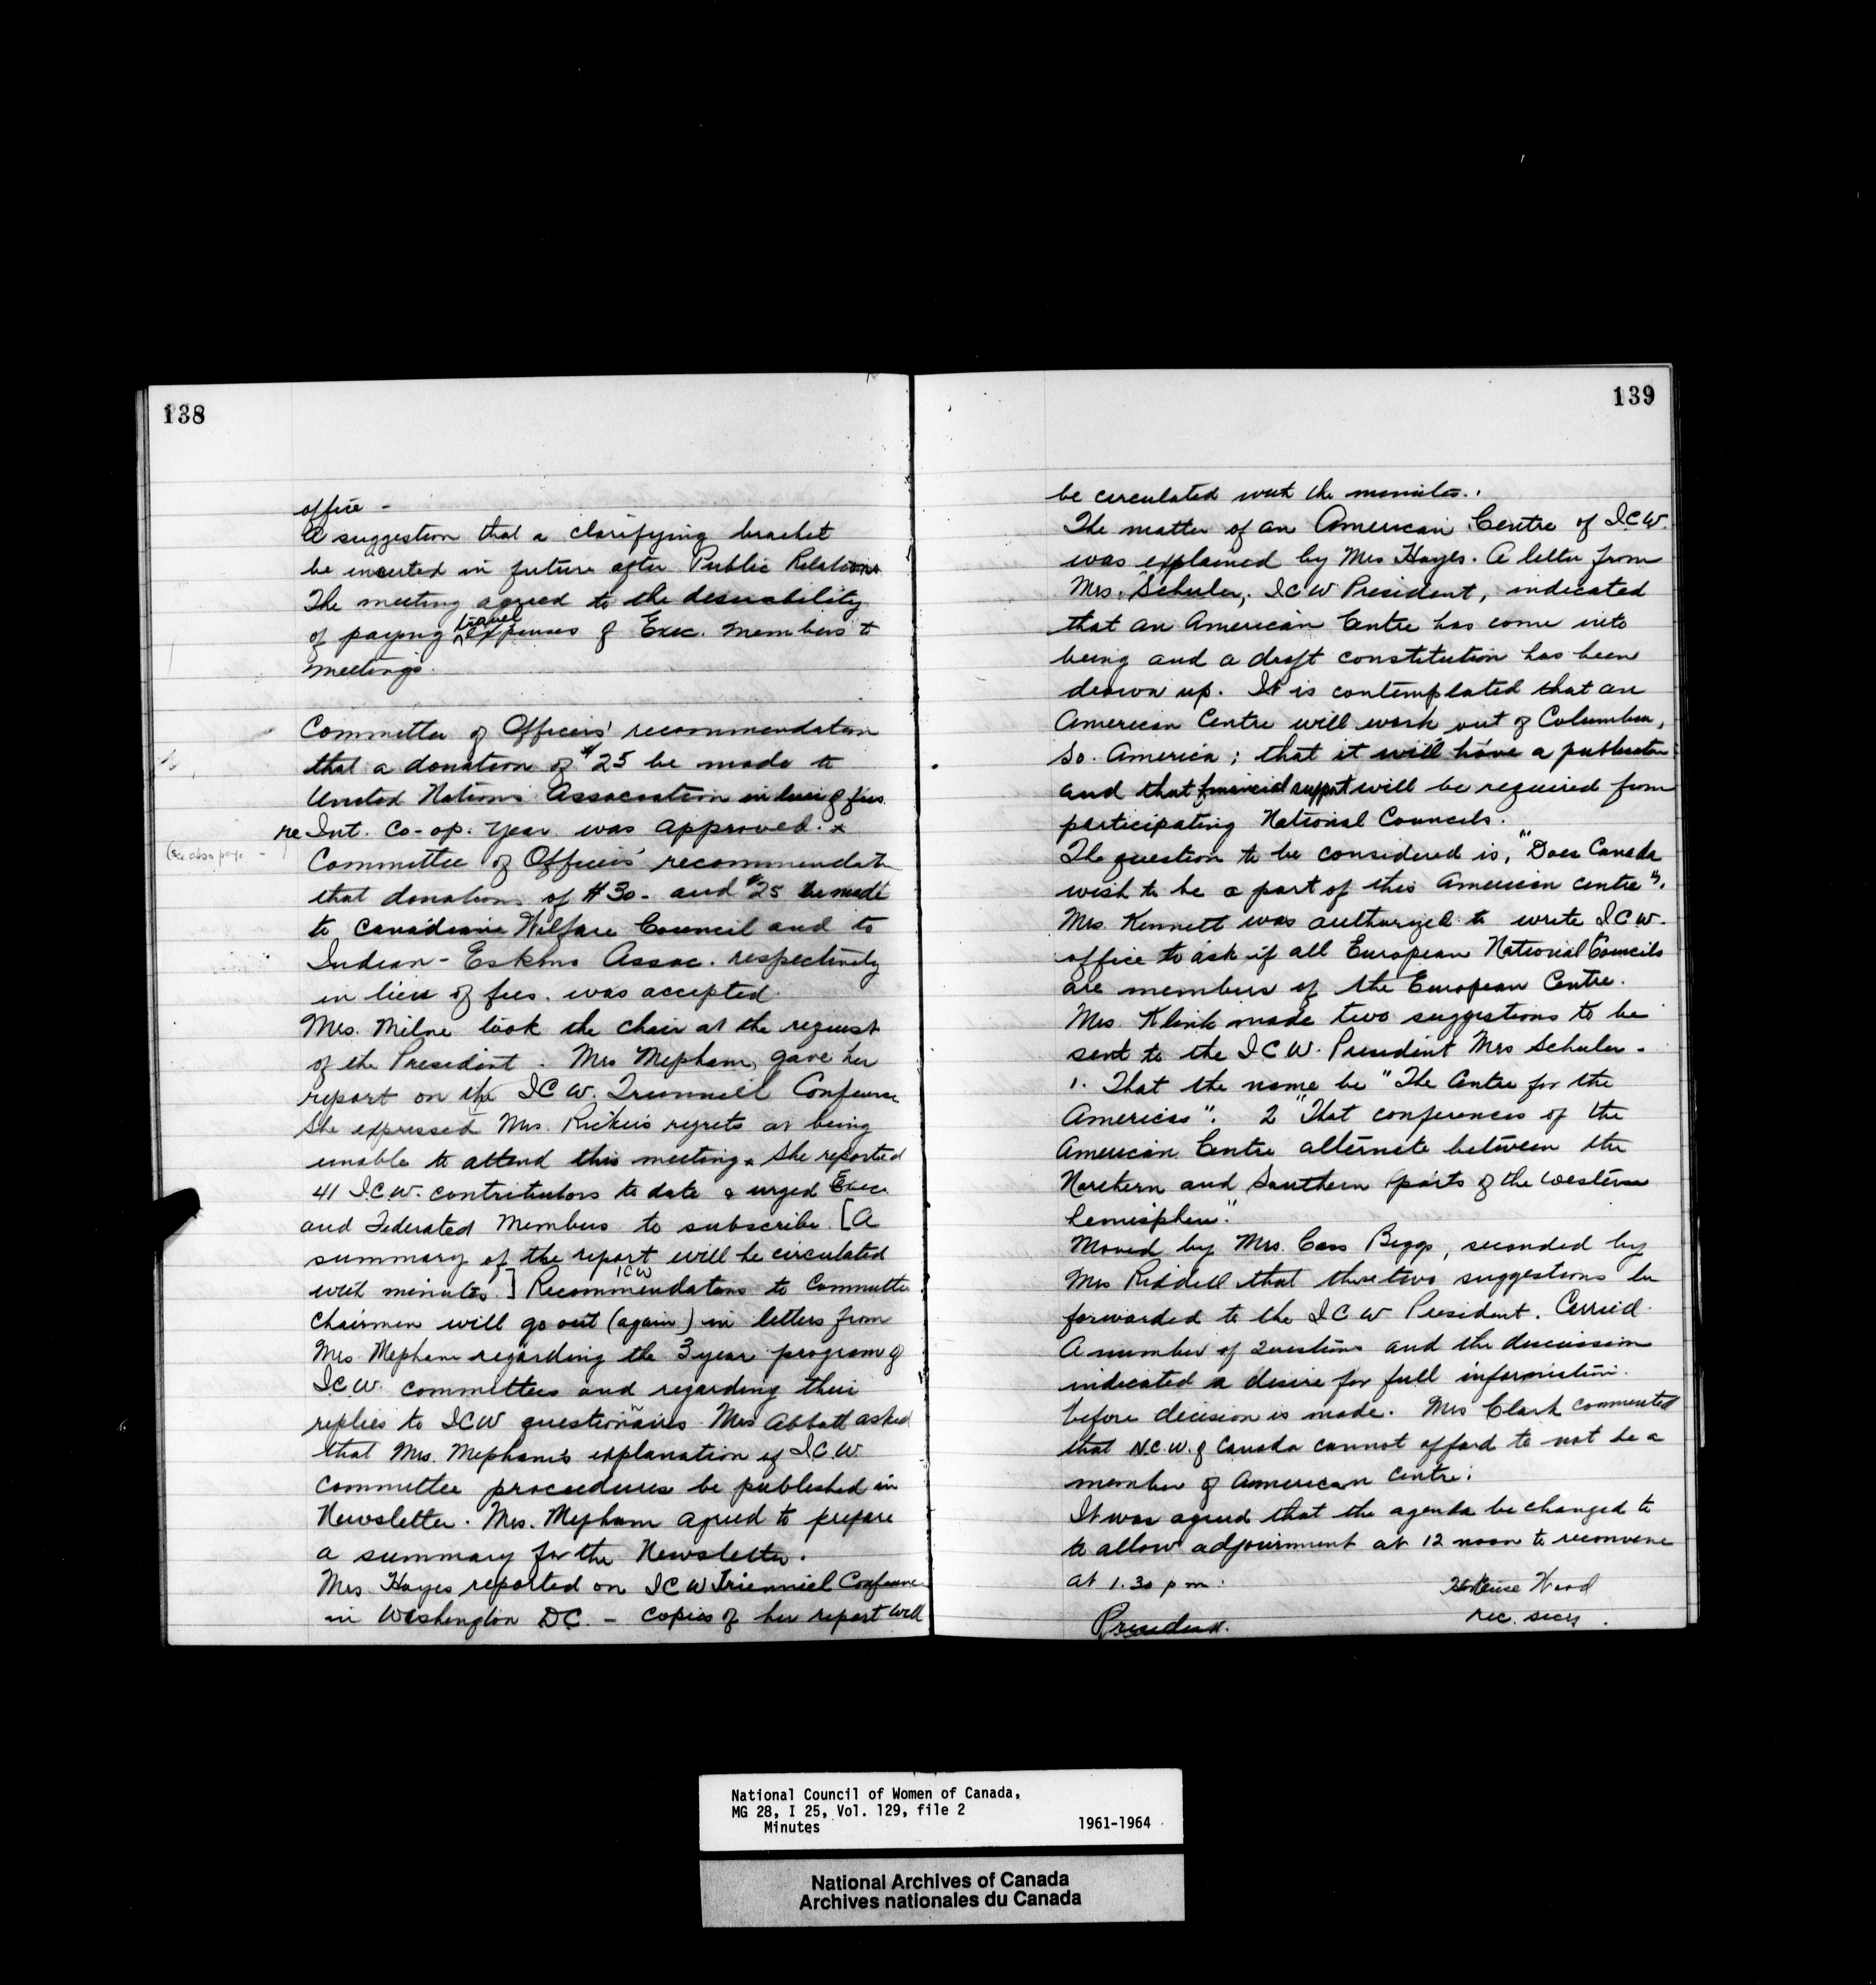 138
office -
A suggestion that a clarifying bracket
be inserted in future after Public Relations
The meeting agreed to the desirability
of paying travel expenses of Exec. Members to
meetings.
Committee of Officers' recommendation
that a donation of $25 be made to
United Nations Association in lieu of fees
re Int. Co-op. Year was approved. x
(see also page -
Committee of Officers' recommendation
that donations of $30 - and $25 be made
to Canadian Welfare Council and to
Indian - Eskimo Assoc. respectively
in lieu of fees. was accepted.
Mrs. Milne took the chair at the request
of the President. Mrs Mepham, gave her
report on the ICW. Triennial Conference
She expressed Mrs. Ricker's regrets at being
unable to attend this meeting. She reported
41 I.C.W. contributors to date & urged Exec.
and Federated Members to subscribe. [A
summary of the report will be circulated
with minutes.] ICW Recommendations to Committee
Chairmen will go out (again) in letters from
Mrs. Mepham regarding the 3 year program of
ICW. committees and regarding their
replies to ICW questionnaires. Mrs Abbott asked
that Mrs. Mepham's explanation of I.C.W.
committee proceedures be published in
Newsletter. Mrs. Mepham agreed to prepare
a summary for the Newsletter.
Mrs. Hayes reported on ICW Triennial Conference
in Washington DC. - copies of her report will
139
be circulated with the minutes.
The matter of an American Centre of I.C.W.
was explained by Mrs Hayes. A letter from
Mrs. Schuler, ICW President, indicated
that an American Centre has come into
being and a draft constitution has been
drawn up. It is contemplated that an
American Centre will work out of Columbia,
So. America; that it will have a publication
and that financial support will be required from
participating National Councils.
The question to be considered is, "Does Canada
wish to be a part of this American centre".
Mrs. Kennett was authorized to write ICW.
office to ask if all European National Councils
are members of the European Centre.
Mrs. Klink made two suggestions to be
sent to the ICW. President Mrs Schuler.
1. That the name be "The Centre for the
Americas". 2 "That conferences of the
American Centre alternate between the
Northern and Southern parts of the western
hemisphere."
Moved by Mrs. Cass Beggs, seconded by
Mrs Riddell that these two suggestions be
forwarded to the ICW President. Carried.
A number of Questions and the discussion
indicated a desire for full information.
before decision is made. Mrs Clark commented
that N.C.W. of Canada cannot afford to not be a
member of American Centre.
It was agreed that the agenda be changed to
to allow adjournment at 12 noon to reconvene
at 1.30 p m.
Hortense Wood
President.
rec. secy.
National Council of Women of Canada,
MG 28, I 25, Vol. 129, file 2
Minutes 1961-1964
National Archives of Canada
Archives nationales du Canada